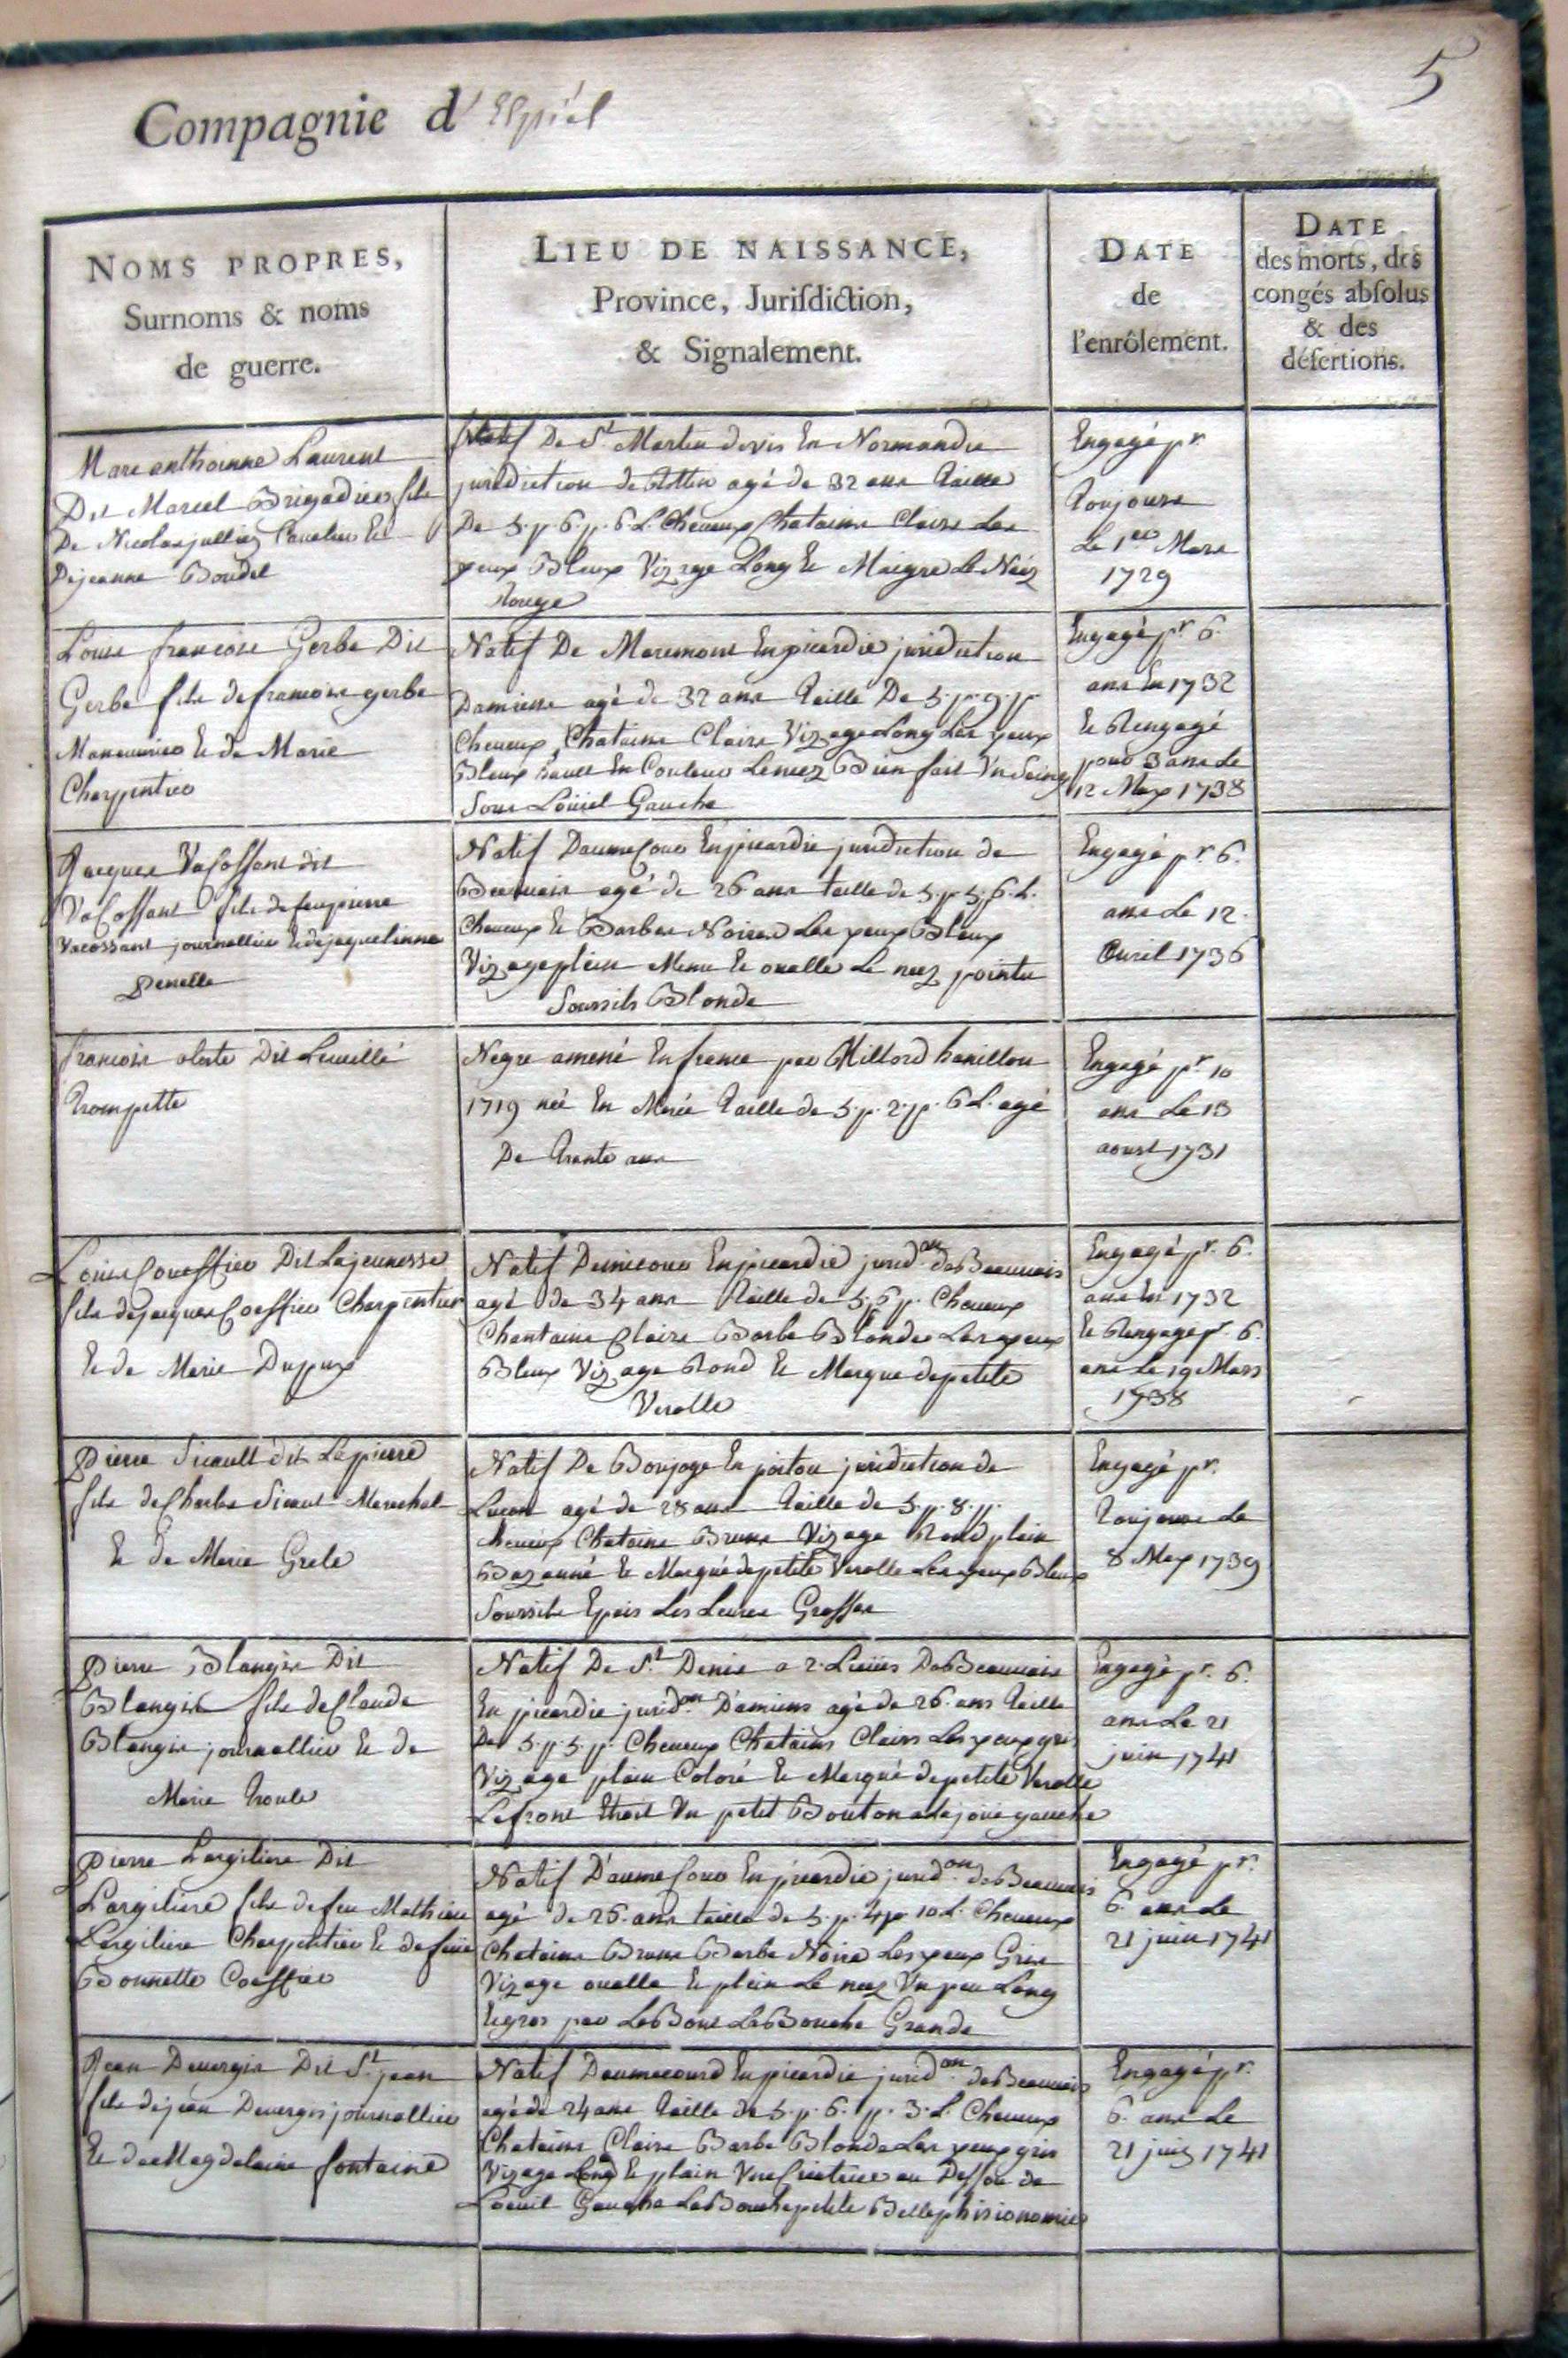 5
Compagnie d'Espiés
NOMS PROPRES,
Surnoms & noms
de guerre.
LIEU DE NAISSANCE,
Province, Jurisdiction,
& Signalement.
DATE
de
l'enrôlement.
DATE
des morts, des
congés absolus
& des
désertions.
Marc anthoinne Laurent
Dit Marcel Brigadier fils
De Nicolas jullien Cavelier Et
De jeanne Boudel
Natif De St Martin En Normandie
juridiction de agé de 32 ans Taille
De 5. p. 6. p. 6 L. Cheveux Chatains Clairs Les
yeux Bleux Vizage Long Et Maigre Le Néz
Rouge
Engagé pr
Toujours
Le 1er Mars
1729
Louis francois Gerbe Dit
Gerbe fils de francois gerbe
Manouvrier Et de Marie
Charpentier
Natif De Maremont En picardie juridiction
Damiens agé de 32 ans Taille De 5. p. 9. p.
Cheveux Chatains Clairs Vizage Long Les yeux
Bleux haut En Couleur Le nez Bien fait Vn Seing
Sous Loüiel Gauche
Engagé pr 6.
ans En 1732
Et Rengagé
pour 3 ans Le
12 May 1738
Jacques VaCossant dit
VaCossant fils de feu pierre
Vacossant journallier Et de jaquelinne
Penelle
Natif DaumeCour En picardie juridiction de
Beauvais agé de 26 ans taille de 5. p. 5. p. 6. L.
Cheveux Et Barbes Noires Les yeux Bleux
Vizage plein Menu Et ovalle Le nez pointu
Soursils Blonde
Engagé pr 6.
ans Le 12.
Avril 1736
francois Dit Leveillé
Trompette
Negre amené En france par Millord hamilton
1719 né En Taille de 5. p. 2. p. 6 L. agé
De Trante ans
Engagé pr 10
ans Le 13
aoust 1731
Louis Coueffier Dit Lajeunesse
fils de jacques Coeffier Charpentier
Et de Marie Dupux
Natif En picardie jurid.on de Beauvais
agé de 34 ans Taille de 5. p. 6. p. Cheveux
Chantains Clairs Barbe Blondes Les yeux
Bleux Vizage Rond Et Marque de petite
Verolle
Engagé pr. 6.
ans En 1732
Et Rengagé pr. 6.
ans Le 19 Mars
1738
pierre Sicault dit Lapierre
fils de Charles Sicaut Marechal
Et De Marie Grele
Natif De En poitou juridiction de
Luçon agé de 28 ans Taille de 5. p. 8. p.
cheveux Chatains Bruns Vizage Rond plein
Bazanné Et Marqué de petite Verolle Les yeux Bleux
Soursils Epais Les Levres Grosses
Engagé pr.
Toujours Le
8 May 1739
pierre Blangis Dit
Blangis fils de Claude
Blangis journallier Et de
Marie Troule
Natif De St. Denis a 2. Lieües De Beauvais
En picardie jurid.on D'amiens agé de 26. ans Taille
De 5. p. 5. p. Cheveux Chatains Clairs Les yeux gris
Vizage plein Coloré Et Marqué de petite Verolle
Le front Etroit Vn petit Bouton a la joüe gauche
Engagé pr. 6.
ans Le 21
juin 1741
pierre Largiliere Dit
Largiliere fils de feu Mathieu
Largiliere Charpentier Et de feüe
Bonnette Coeffier
Natif D'aumeCour En picardie jurid.on de Beauvais
agé de 26. ans taille de 5. p. 4 p. 10 L. Cheveux
Chatains Bruns Barbe Noire Les yeux Gris
Vizage ovalle Et plein Le nez Vn peu Long
Et gros par Le Bout La Bouche Grande
Engagé pr.
6. ans Le
21 juin 1741
Jean Devergis Dit St. jean
fils de jean Devergis journallier
Et de Magdelaine fontaine
Natif Daumecourd En picardie jurid.on de Beauvais
agé de 24 ans Taille de 5. p. 6. p. 3. L. Cheveux
Chatains Clairs Barbe Blonde Les yeux gris
Vizage Long Et plain Vne Cicatrice au Dessou de
Loeuil Gauche La Bouche petite Belle phisionomie
Engagé pr.
6. ans Le
21 juin 1741